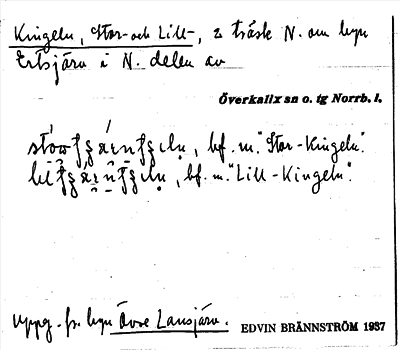 Kingeln, Stor- och Lill-, 2 träsk N. om byn
Ertsjärv i N. delen av
Överkalix sn o. tg Norrb. l.
bf. m. "Stor-Kingeln".
bf. m. "Lill-Kingeln".
Uppg. fr. byn Övre Lansjärv. EDVIN BRÄNNSTRÖM 1937